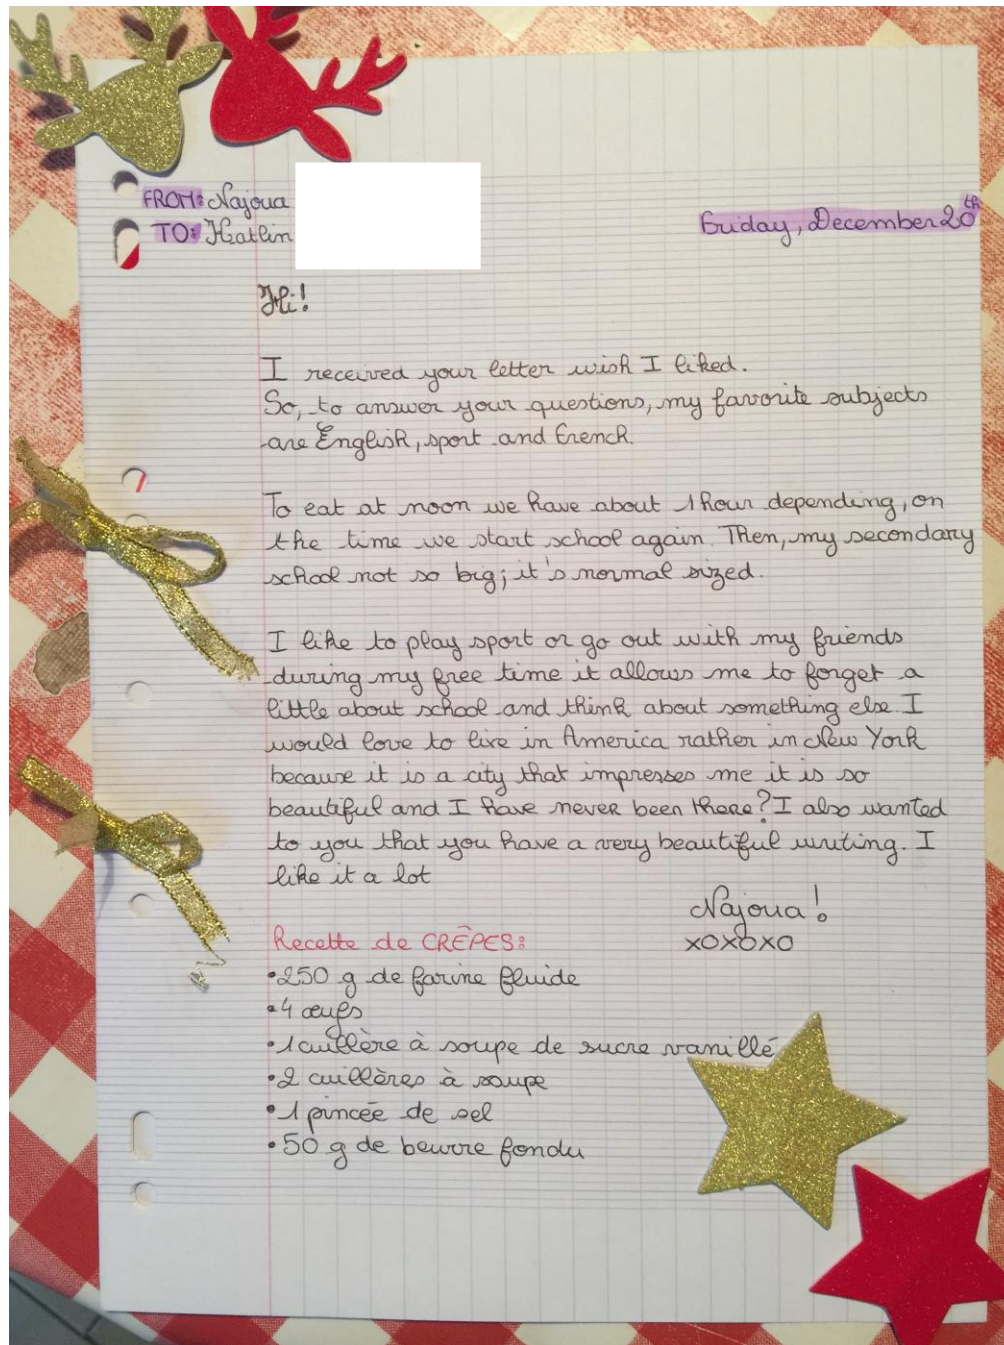 FROM: Najoua
TO: Katlin
Friday, December 20th
Hi!
I received your letter wish I liked.
So, to answer your questions, my favorite subjects
are English, sport and French.
To eat at noon we have about 1 hour depending, on
the time we start school again. Then, my secondary
school not so big; it's normal sized.
I like to play sport or go out with my friends
during my free time it allows me to forget a
little about school and think about something else. I
would love to live in America rather in New York
because it is a city that impresses me it is so
beautiful and I have never been there? I also wanted
to you that you have a very beautiful writing. I
like it a lot
Najoua!
xoxoxo
Recette de CRÊPES:
•250 g de farine fluide
•4 œufs
•1 cuillère à soupe de sucre vanillé
•2 cuillères à soupe
•1 pincée de sel
•50 g de beurre fondu